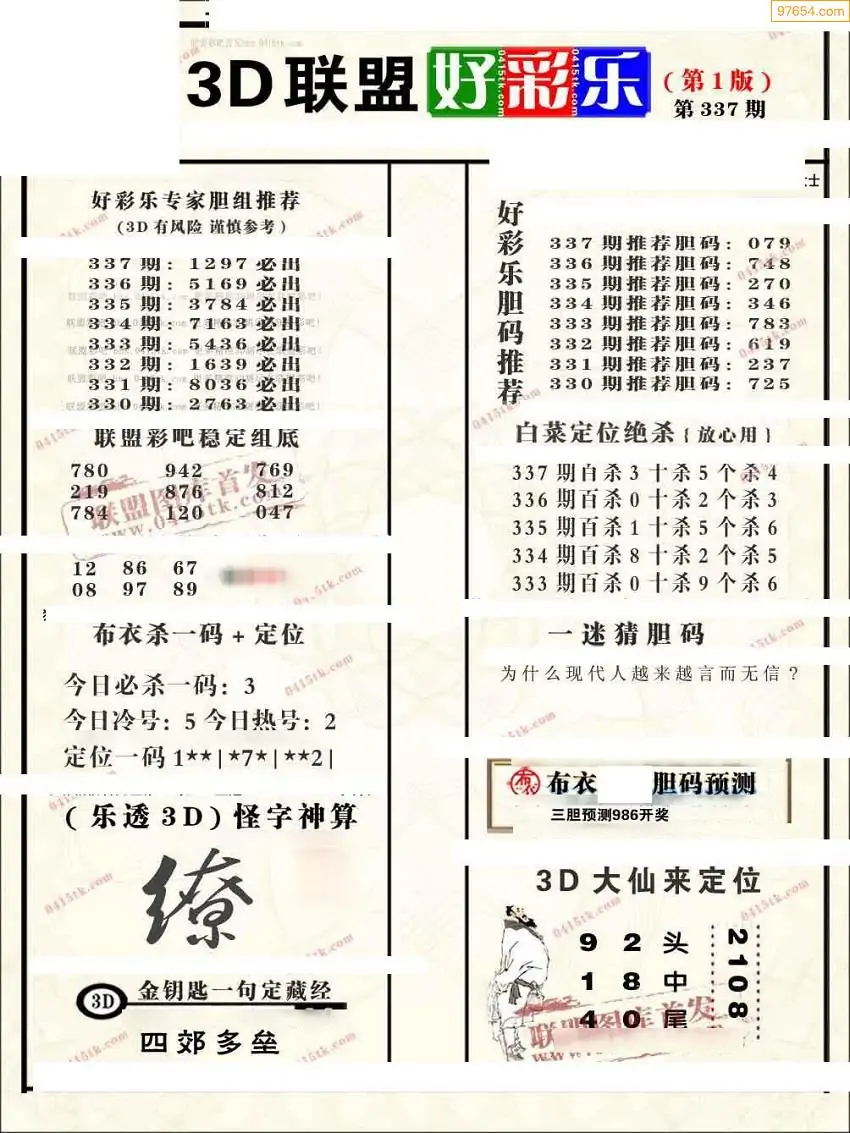 97654.com
3D联盟好彩乐(第1版)
第337期
好彩乐专家胆组推荐
(3D有风险 谨慎参考)
337期:1297必出
336期:5169必出
335期:3784必出
334期:7163必出
333期:5436必出
332期:1639必出
331期:8036必出
330期:2763必出
联盟彩吧稳定组底
780 942 769
219 876 812
784 120 047
12 86 67
08 97 89
布衣杀一码+定位
今日必杀一码:3
今日冷号:5 今日热号:2
定位一码1**|*7*|**2|
(乐透3D)怪字神算
缭
3D 金钥匙一句定藏经
四郊多垒
士
好彩乐胆码推荐
337期推荐胆码:079
336期推荐胆码:748
335期推荐胆码:270
334期推荐胆码:346
333期推荐胆码:783
332期推荐胆码:619
331期推荐胆码:237
330期推荐胆码:725
白菜定位绝杀{放心用}
337期百杀3十杀5个杀4
336期百杀0十杀2个杀3
335期百杀1十杀5个杀6
334期百杀8十杀2个杀5
333期百杀0十杀9个杀6
一迷猜胆码
为什么现代人越来越言而无信?
布衣 布衣 胆码预测
三胆预测986开奖
3D大仙来定位
9 2 头
1 8 中
4 0 尾
2108
联盟图库首发
www.0415tk.com
0415tk.com